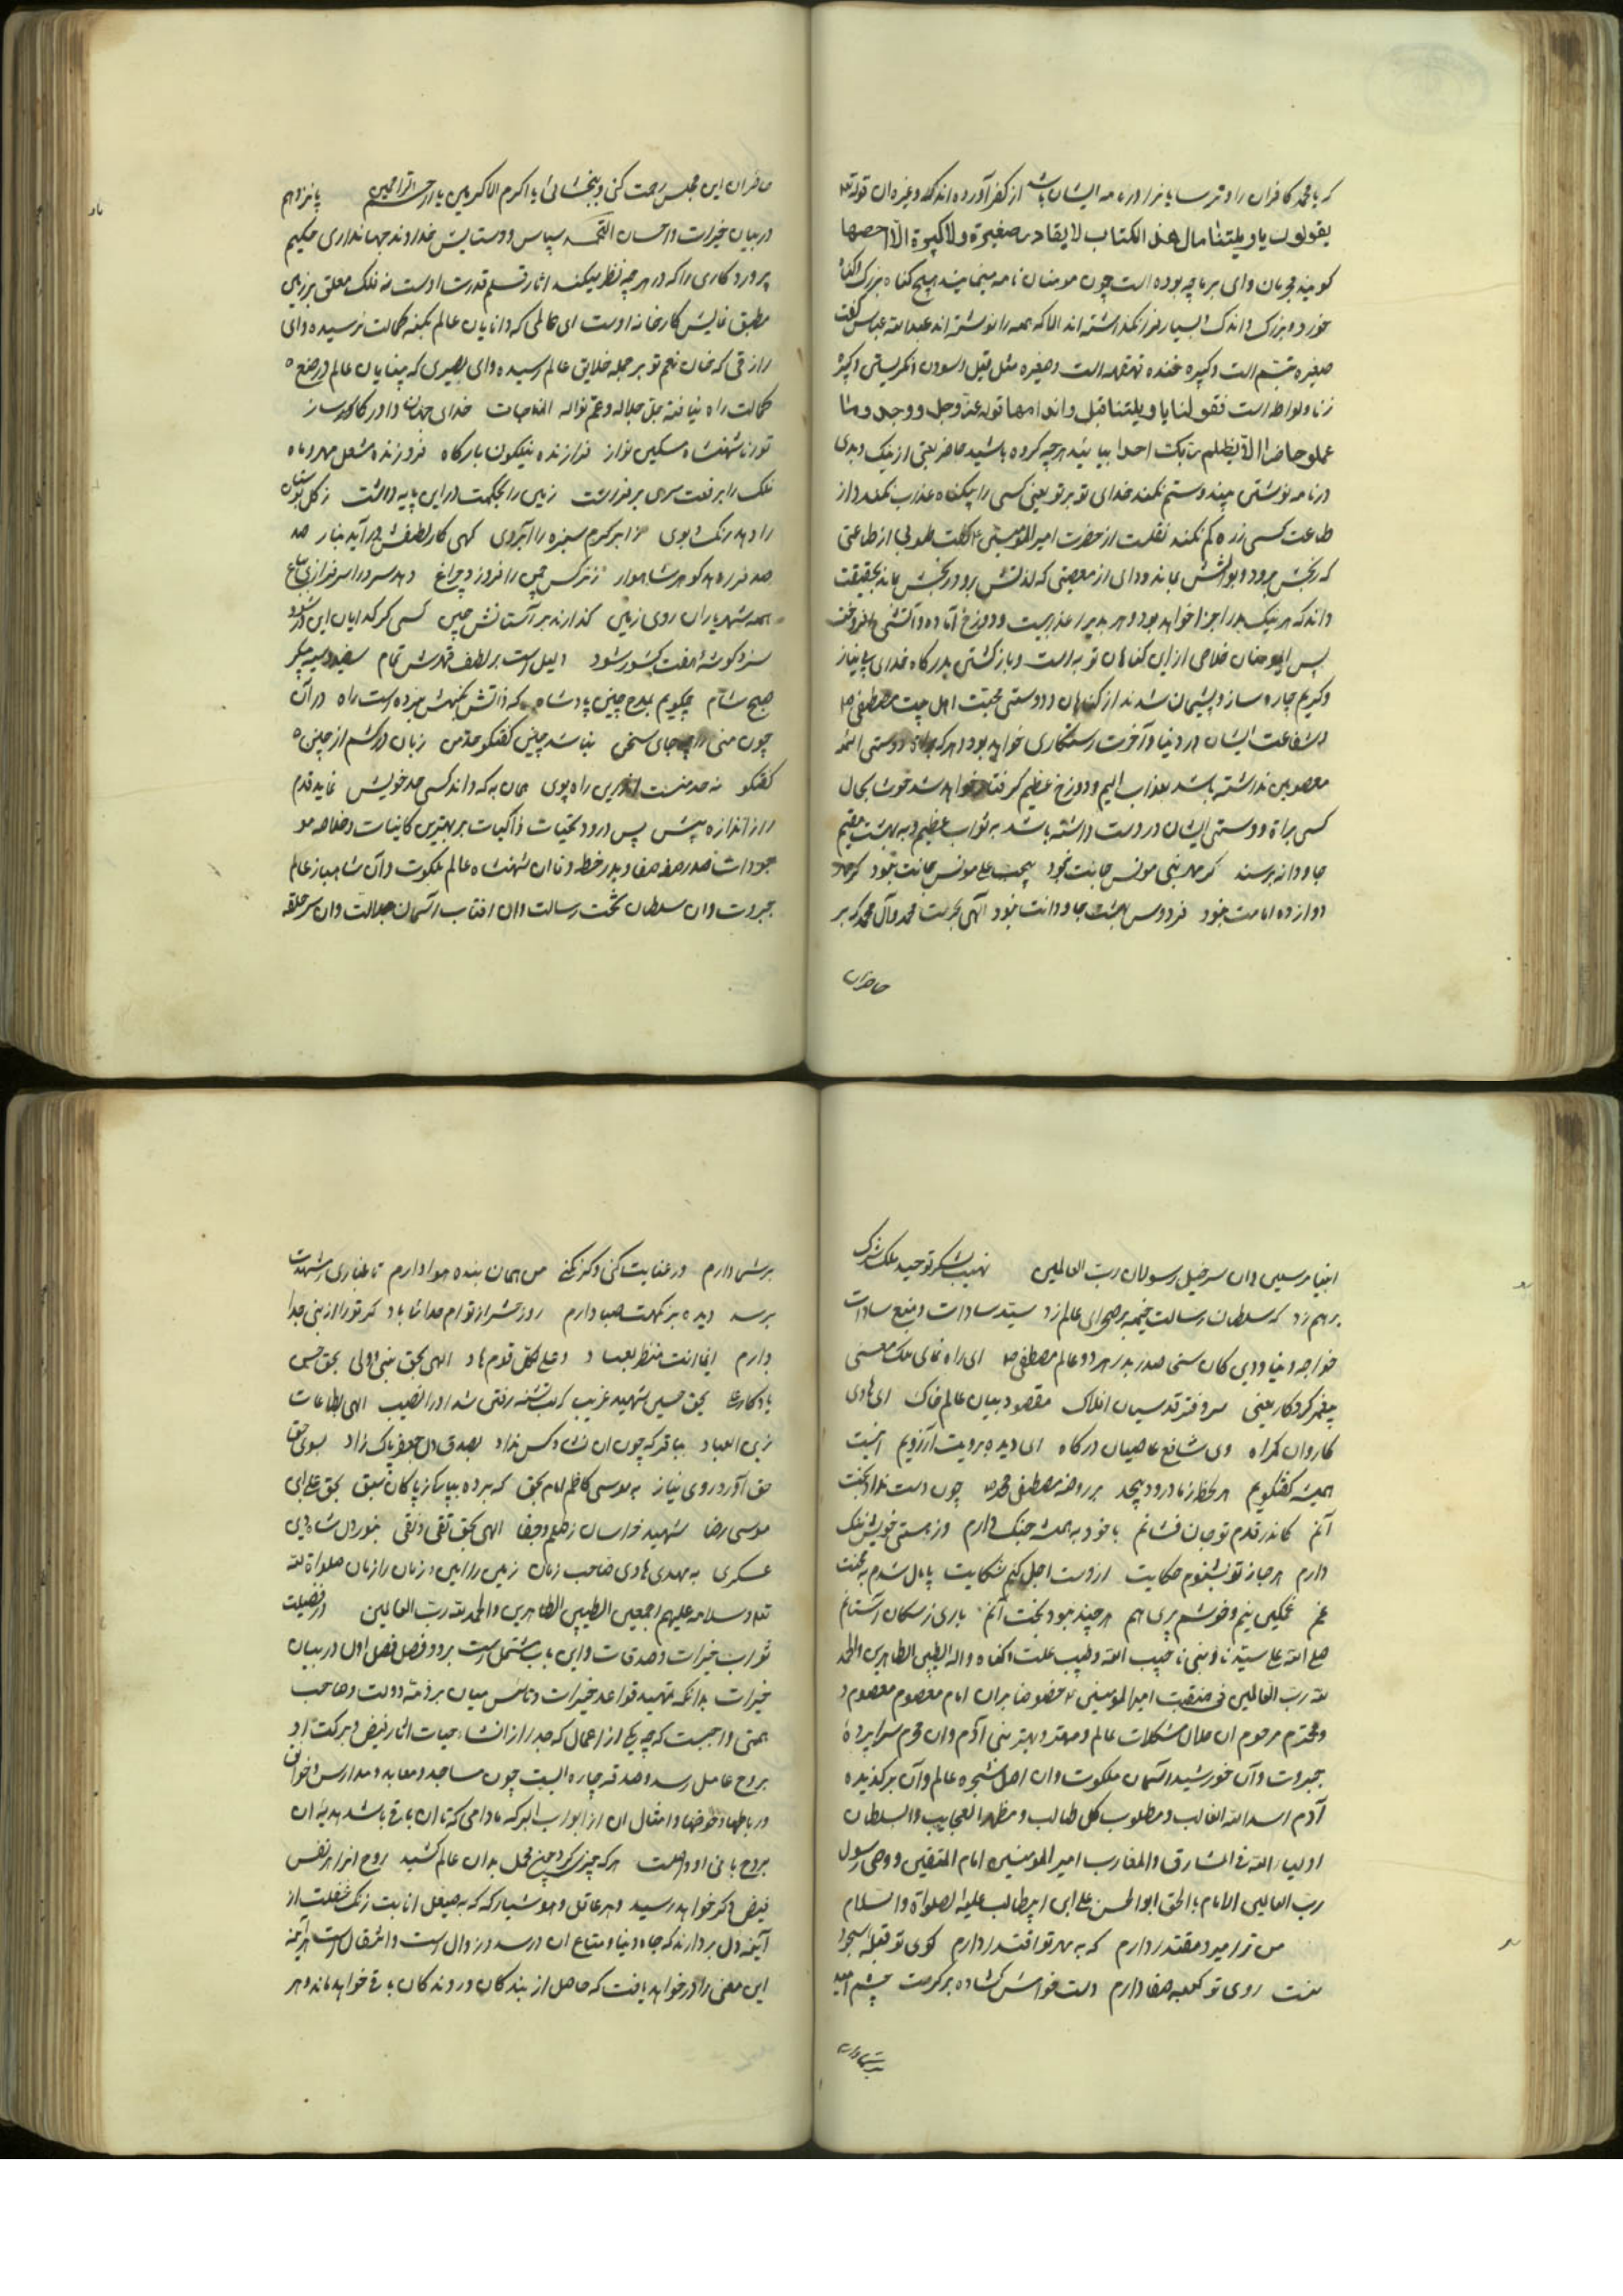 که یا محمد کافران را و ترسایانرا در نامه ایشان باشد از کفر آورده اند که وغیره ان قوله تعه
یقولون یا ویلتنا مال هذا الکتاب لا یغادر صغیرة ولا کبیرة الا احصها
کویند مجرمان وای بر ما چه بوده است چون مومنان نامه هیچ کناه بزرک
خورد و بزرک و اندک و بسیار را نکذاشته اند الا که همه را نوشته اند عبدالله عباس کفت
صغیره تبسم است و کبیره خنده قهقهه است و صغیره مثل
زنا و لواطه است فقولنا یا ویلتنا قوله عز وجل و وجدوا ما
عملو حاضرا لا یظلم ربک احدا بیابید هرچه کرده باشید حاضر یعنی از نیک و بدی
در نامه نوشته و ستم نکند خدای تو بر تو یعنی کسی را بیکناه عذاب نکند و از
طاعت کسی ذره کم نکند نقلست از حضرت امیرالمؤمنین ع که کفت طوبی از طاعتی
که رنجش برود و ثوابش بماند و وای از معصیتی که لذتش برود و رنجش بماند بحقیقت
داند که هر نیک را جزا خواهد بود و هر بد را عذابیست و دوزخ آماده و آتش افروخته
پس ای مومنان خلاص از این کناهان توبه است و بازکشتن بدرکاه خدای بی نیاز
و کریم چاره ساز و پشیمان شدند از کناهان و دوستی محبت اهل بیت مصطفی ص
و شفاعت ایشان در دنیا و آخرت رستکاری خواهد بود و هرکه براة دوستی ائمه
معصومین نداشته باشد بعذاب الیم و دوزخ عظیم کرفتار خواهد شد خوشا بحال
کسی براة دوستی ایشان در دست داشته باشد به ثواب عظیم و به بهشت مقیم
جاودانه برسند کر مهر نبی مونس جانت نبود حب علی مونس جانت نبود کر
دوازده امامت نبود فردوس بهشت جاودانت نبود الهی بحرمت محمد و آل محمد که بر
حاضران
حاضران این مجلس رحمت کنی و ببخشائی یا اکرم الاکرمین یا ارحم الراحمین پانزدهم
در بیان خیرات و احسان سپاس و ستایش خداوند جهانداری حکیم
پروردکاری را که در هرچه نظر میکند اثار قدرت اوست نه فلک معلق بر زمین
مطبق نمایش کارخانه اوست ای عالمی که دانایان عالم بکنه کمالت نرسیده و ای
رازقی که خان نعم تو بر جمله خلایق عالم رسیده و ای بصیری که بینایان عالم در صنع
کمالت راه نیافته جل جلاله و عم نواله خدای جهان داور کارساز
تورنا شهنشاه مسکین نواز فرازنده نیلکون بارکاه فروزنده مشعل مهر و ماه
فلک را برفعت سری برفراشت زمین را بحکمت در این پایه داشت ز کل بوستان
را دهد رنک و بوی ز ابر کرم سبزه را آبروی کهی کار لطفش در آید بناز هد
صدف را دهد کوهر شاهوار ز نرکس چمن را فروزد چراغ دهد سرو را سرفرازی بباغ
همه شهریاران روی زمین کذارند بر آستانش جبین کسی کز کدایان این در شود
سزد کوشه هفت کشور شود دلیل است بر لطف و قهرش تمام سفید و سیه
صبح شام چکویم بمدح چنین پادشاه که ذاتش بکنهش نبرده است راه در آن
چون منی را چه جای سخن نباشد چنین کفتکو حد من زبان در کشم از چنین
کفتکو نه حد منست اندرین راه پوی همان به که داند کسی حد خویش نماید قدم
را ز اندازه بیش پس درود و تحیات زاکیات بر بهترین کاینات و خلاصه مو
جودات صدر صفه صفا و بدر خطه وفا ان شهنشاه عالم ملکوت و آن شاهباز عالم
جبروت و ان سلطان تخت رسالت و ان افتاب آسمان جلالت و ان سر حلقه
انبیا مرسلین و ان سرخیل رسولان رب العالمین لشکر توحید ملک شرک
بر هم زد که سلطان رسالت خیمه بر صحرای عالم زد سید سادات و منبع سادات
خواجه دنیا و دین کان سخی صدر بدر هر دو عالم مصطفی ص ای راه نمای ملک معنی
پیغمبر کردکار یعنی سر دفتر قدسیان افلاک مقصود بیان عالم خاک ای هادی
کاروان کمراه وی شافع عاصیان درکاه ای دیده برویت آرزویم اینست
همیشه کفتکویم هر لحظه ز ما درود بیحد بر روضه مصطفی محمد ص چون دست نداد بخت
آنم کاندر قدم تو جان فشانم با خود به همیشه جنک دارم وز هستی خویش ننک
دارم هر جا ز تو بشنوم حکایت از دست اجل کنم شکایت پامال شدم به محنت
غم غمکین نیم و خوشم برین هم هرچند نبود بخت آنم باری ز سکان آستانم
صلی الله علی سیدنا و نبینا حبیب الله و طبیب علت کناه و اله الطیبین الطاهرین والحمد
لله رب العالمین فی منقبت امیرالمؤمنین ع خصوصا بران امام معصوم معصوم و
و محترم مرحوم ان حلال مشکلات عالم و مهتر و بهتر بنی آدم و ان محرم سراپرده
جبروت و آن خورشید آسمان ملکوت و ان اصل شجره عالم و آن برکزیده
آدم اسدالله الغالب و مطلوب کل طالب و مظهر العجایب والسلطان
اولیاء الله فی المشارق والمغارب امیرالمومنین امام المتقین و وصی رسول
رب العالمین الامام بالحق ابوالحسن علی ابن ابیطالب علیه الصلواة والسلام
من ترا میر و مقتدا دارم که به مهر تو اقتدا دارم کوی تو قبله سجود
منت روی تو کعبه صفا دارم دست خواهش کشاده بر کرمت چشم امید
بر شما دارم
بر شما دارم ور عنایت کنی و کر نکنی من همان بنده هوادارم تا غباری ز مشهدت
برسد دیده بر نکهت صبا دارم روز حشر از توام جدائی باد کر تو را از نبی جدا
دارم انما انت منذر بعباد و علی لکل قوم هاد الهی بحق نبی و ولی بحق حسن
یادکار علی بحق حسین شهید غریب که لب تشنه رفتن شد او را نصیب الهی بطاعات
زین العباد بباقر که چون ان نشاد کس نداد بصدق دل جعفر پاک زاد بسوی
حق آورد روی نیاز به موسی کاظم امام بحق که برده بپاکی ز پاکان سبق بحق علی ابن
موسی رضا شهید خراسان ز ظلم و جفا الهی بحق تقی و نقی بنور دل شاه دین
عسکری به مهدی هادی صاحب زمان زمین را امین و زمان را زمان صلواة الله
تعه و سلامه علیهم اجمعین الطیبین الطاهرین والحمد لله رب العالمین در فضیلت
ثواب خیرات و صدقات و این باب مشتمل است بر دو فصل فصل اول در بیان
خیرات بدانکه تمهید قواعد خیرات و تاسیس مبان بر ذمه دولت و صاحب
همتی واجبست که چه یکی از اعمال که بعد از انشاء حیات اثار فیض و برکت او
بروح عامل رسد و صدقه جاریه است چون مساجد و معابد و مدارس و خوانق
و رباطها و حوضها و امثال ان از ابواب البر که مادامی که تا ان باقی باشد هدیه ان
بروح بانی او واصلست هرکه چیزی کرد چنین محل بدان عالم کشید روح انرا هر نفس
فیض دکر خواهد رسید و هر عاقل و هوشیار که که به صیقل انابت زنک غفلت از
آینه دل بردارند که جاه دنیا و متاع ان درصدد زوال است و انتقال است هر آینه
این معنی را در خواهد یافت که حاصل از بندکان و روندکان باقی خواهد ماند و هر